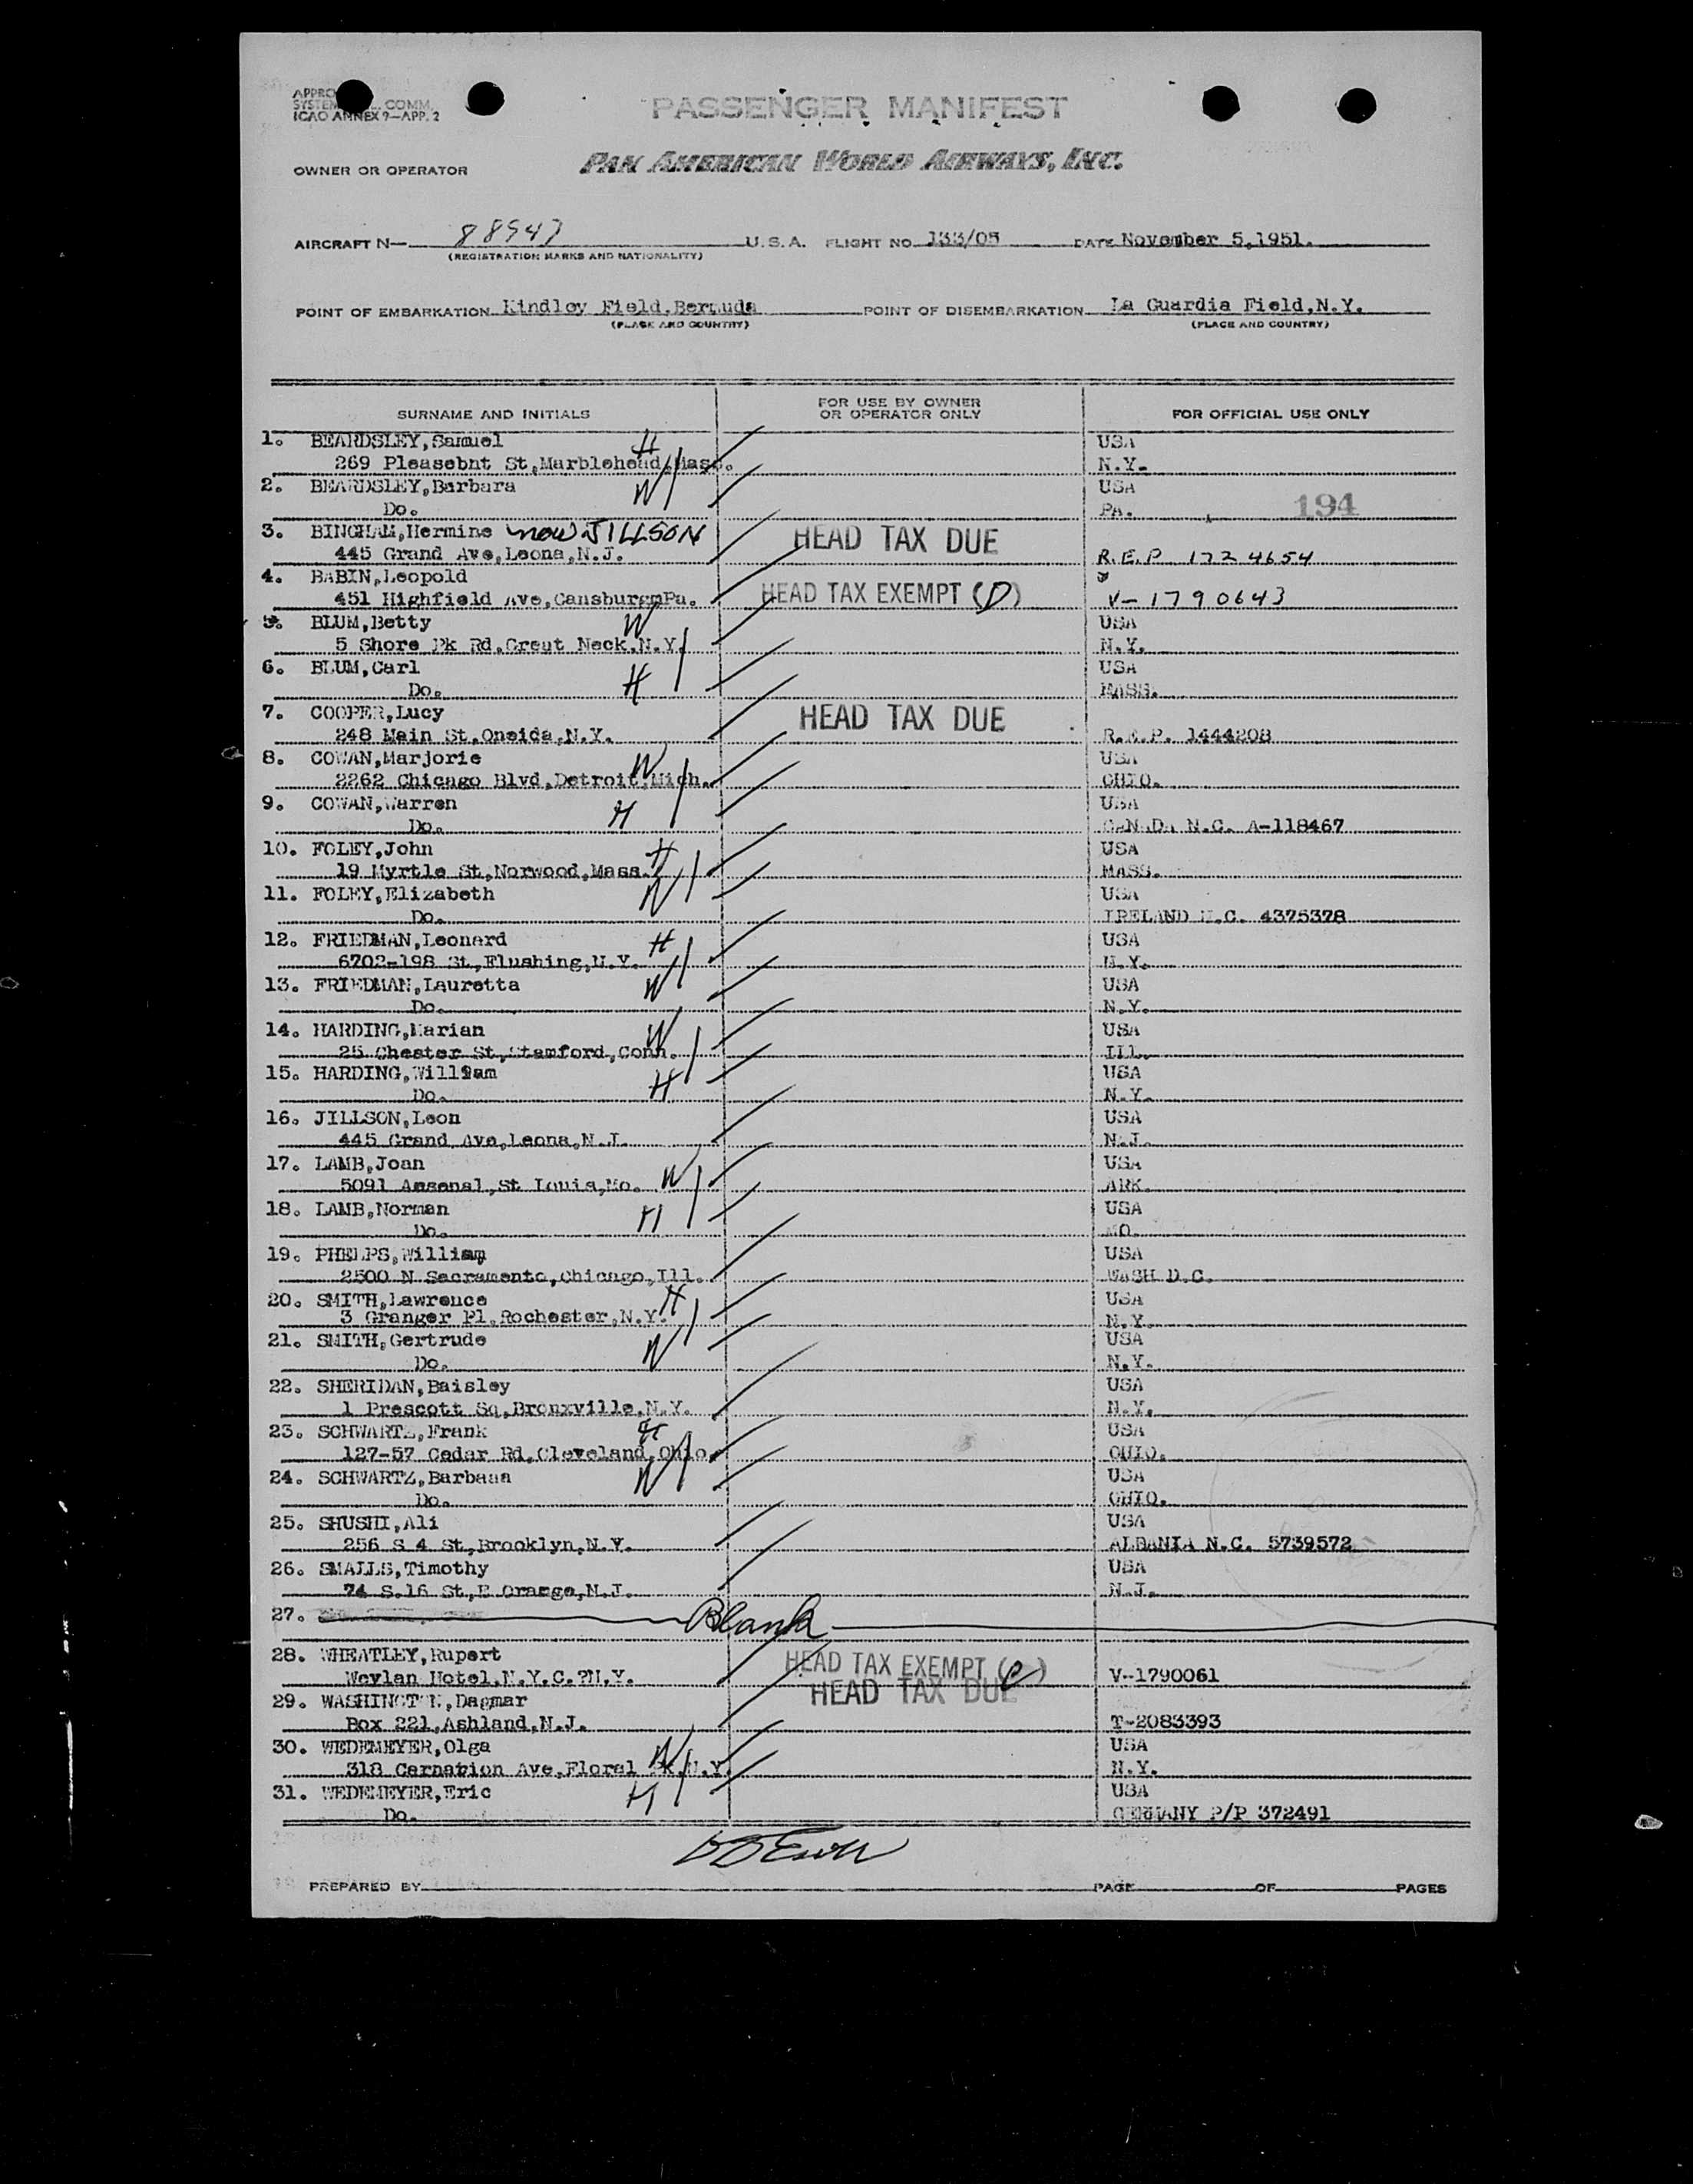 APPRO
SYSTEM COMM.
ICAO ANNEX 9—APP. 2
PASSENGER MANIFEST
OWNER OR OPERATOR PAN AMERICAN WORLD AIRWAYS, INC.
AIRCRAFT N— 88947 U.S.A. FLIGHT NO 133/05 DATE November 5,1951.
(REGISTRATION MARKS AND NATIONALITY)
POINT OF EMBARKATION Kindley Field,Bermuda POINT OF DISEMBARKATION La Guardia Field,N.Y.
(PLACE AND COUNTRY) (PLACE AND COUNTRY)
SURNAME AND INITIALS FOR USE BY OWNER OR OPERATOR ONLY FOR OFFICIAL USE ONLY
1. BEARDSLEY,Samuel H USA
269 Pleasebnt St,Marblehead,Mass. N.Y.
2. BEARDSLEY,Barbara W USA
Do. PA. 194
3. BINGHAM,Hermine now JILLSON HEAD TAX DUE
445 Grand Ave,Leona,N.J. R.E.P 1724654
4. BABIN,Leopold
451 Highfield Ave,CansburgmPa. HEAD TAX EXEMPT (D) V-1790643
5. BLUM,Betty W USA
5 Shore Pk Rd,Great Neck,N.Y. N.Y.
6. BLUM,Carl H USA
Do. MASS.
7. COOPER,Lucy HEAD TAX DUE
248 Main St,Oneida,N.Y. R.E.P. 1444208
8. COWAN,Marjorie W USA
2262 Chicago Blvd,Detroit,Mich. OHIO.
9. COWAN,Warren H USA
Do. CANADA N.C. A-118467
10. FOLEY,John H USA
19 Myrtle St,Norwood,Mass. MASS.
11. FOLEY,Elizabeth W USA
Do. IRELAND N.C. 4375378
12. FRIEDMAN,Leonard H USA
6702-198 St,Flushing,N.Y. N.Y.
13. FRIEDMAN,Lauretta W USA
Do. N.Y.
14. HARDING,Marian W USA
25 Chester St,Stamford,Conn. ILL.
15. HARDING,William H USA
Do. N.Y.
16. JILLSON,Leon USA
445 Grand Ave,Leona,N.J. N.J.
17. LAMB,Joan W USA
5091 Arsenal,St Louis,Mo. ARK.
18. LAMB,Norman H USA
Do. MO.
19. PHELPS,William USA
2500 N Sacramento,Chicago,Ill. WASH D.C.
20. SMITH,Lawrence H USA
3 Granger Pl,Rochester,N.Y. N.Y.
21. SMITH,Gertrude W USA
Do. N.Y.
22. SHERIDAN,Baisley USA
1 Prescott Sq,Bronxville,N.Y. N.Y.
23. SCHWARTZ,Frank H USA
127-57 Cedar Rd,Cleveland,Ohio. OHIO.
24. SCHWARTZ,Barbaaa W USA
Do. OHIO.
25. SHUSHI,Ali USA
256 S 4 St,Brooklyn,N.Y. ALBANIA N.C. 5739572
26. SMALLS,Timothy USA
74 S.16 St,E Orange,N.J. N.J.
27. Blank
28. WHEATLEY,Rupert HEAD TAX EXEMPT (D)
Weylan Hotel,N.Y.C.?N.Y. V-1790061
29. WASHINGTON,Dagmar HEAD TAX DUE
Box 221,Ashland,N.J. T-2083393
30. WEDEMEYER,Olga W USA
318 Carnation Ave,Floral Pk,N.Y. N.Y.
31. WEDEMEYER,Eric H USA
Do. GERMANY P/P 372491
PREPARED BY PAGE OF PAGES